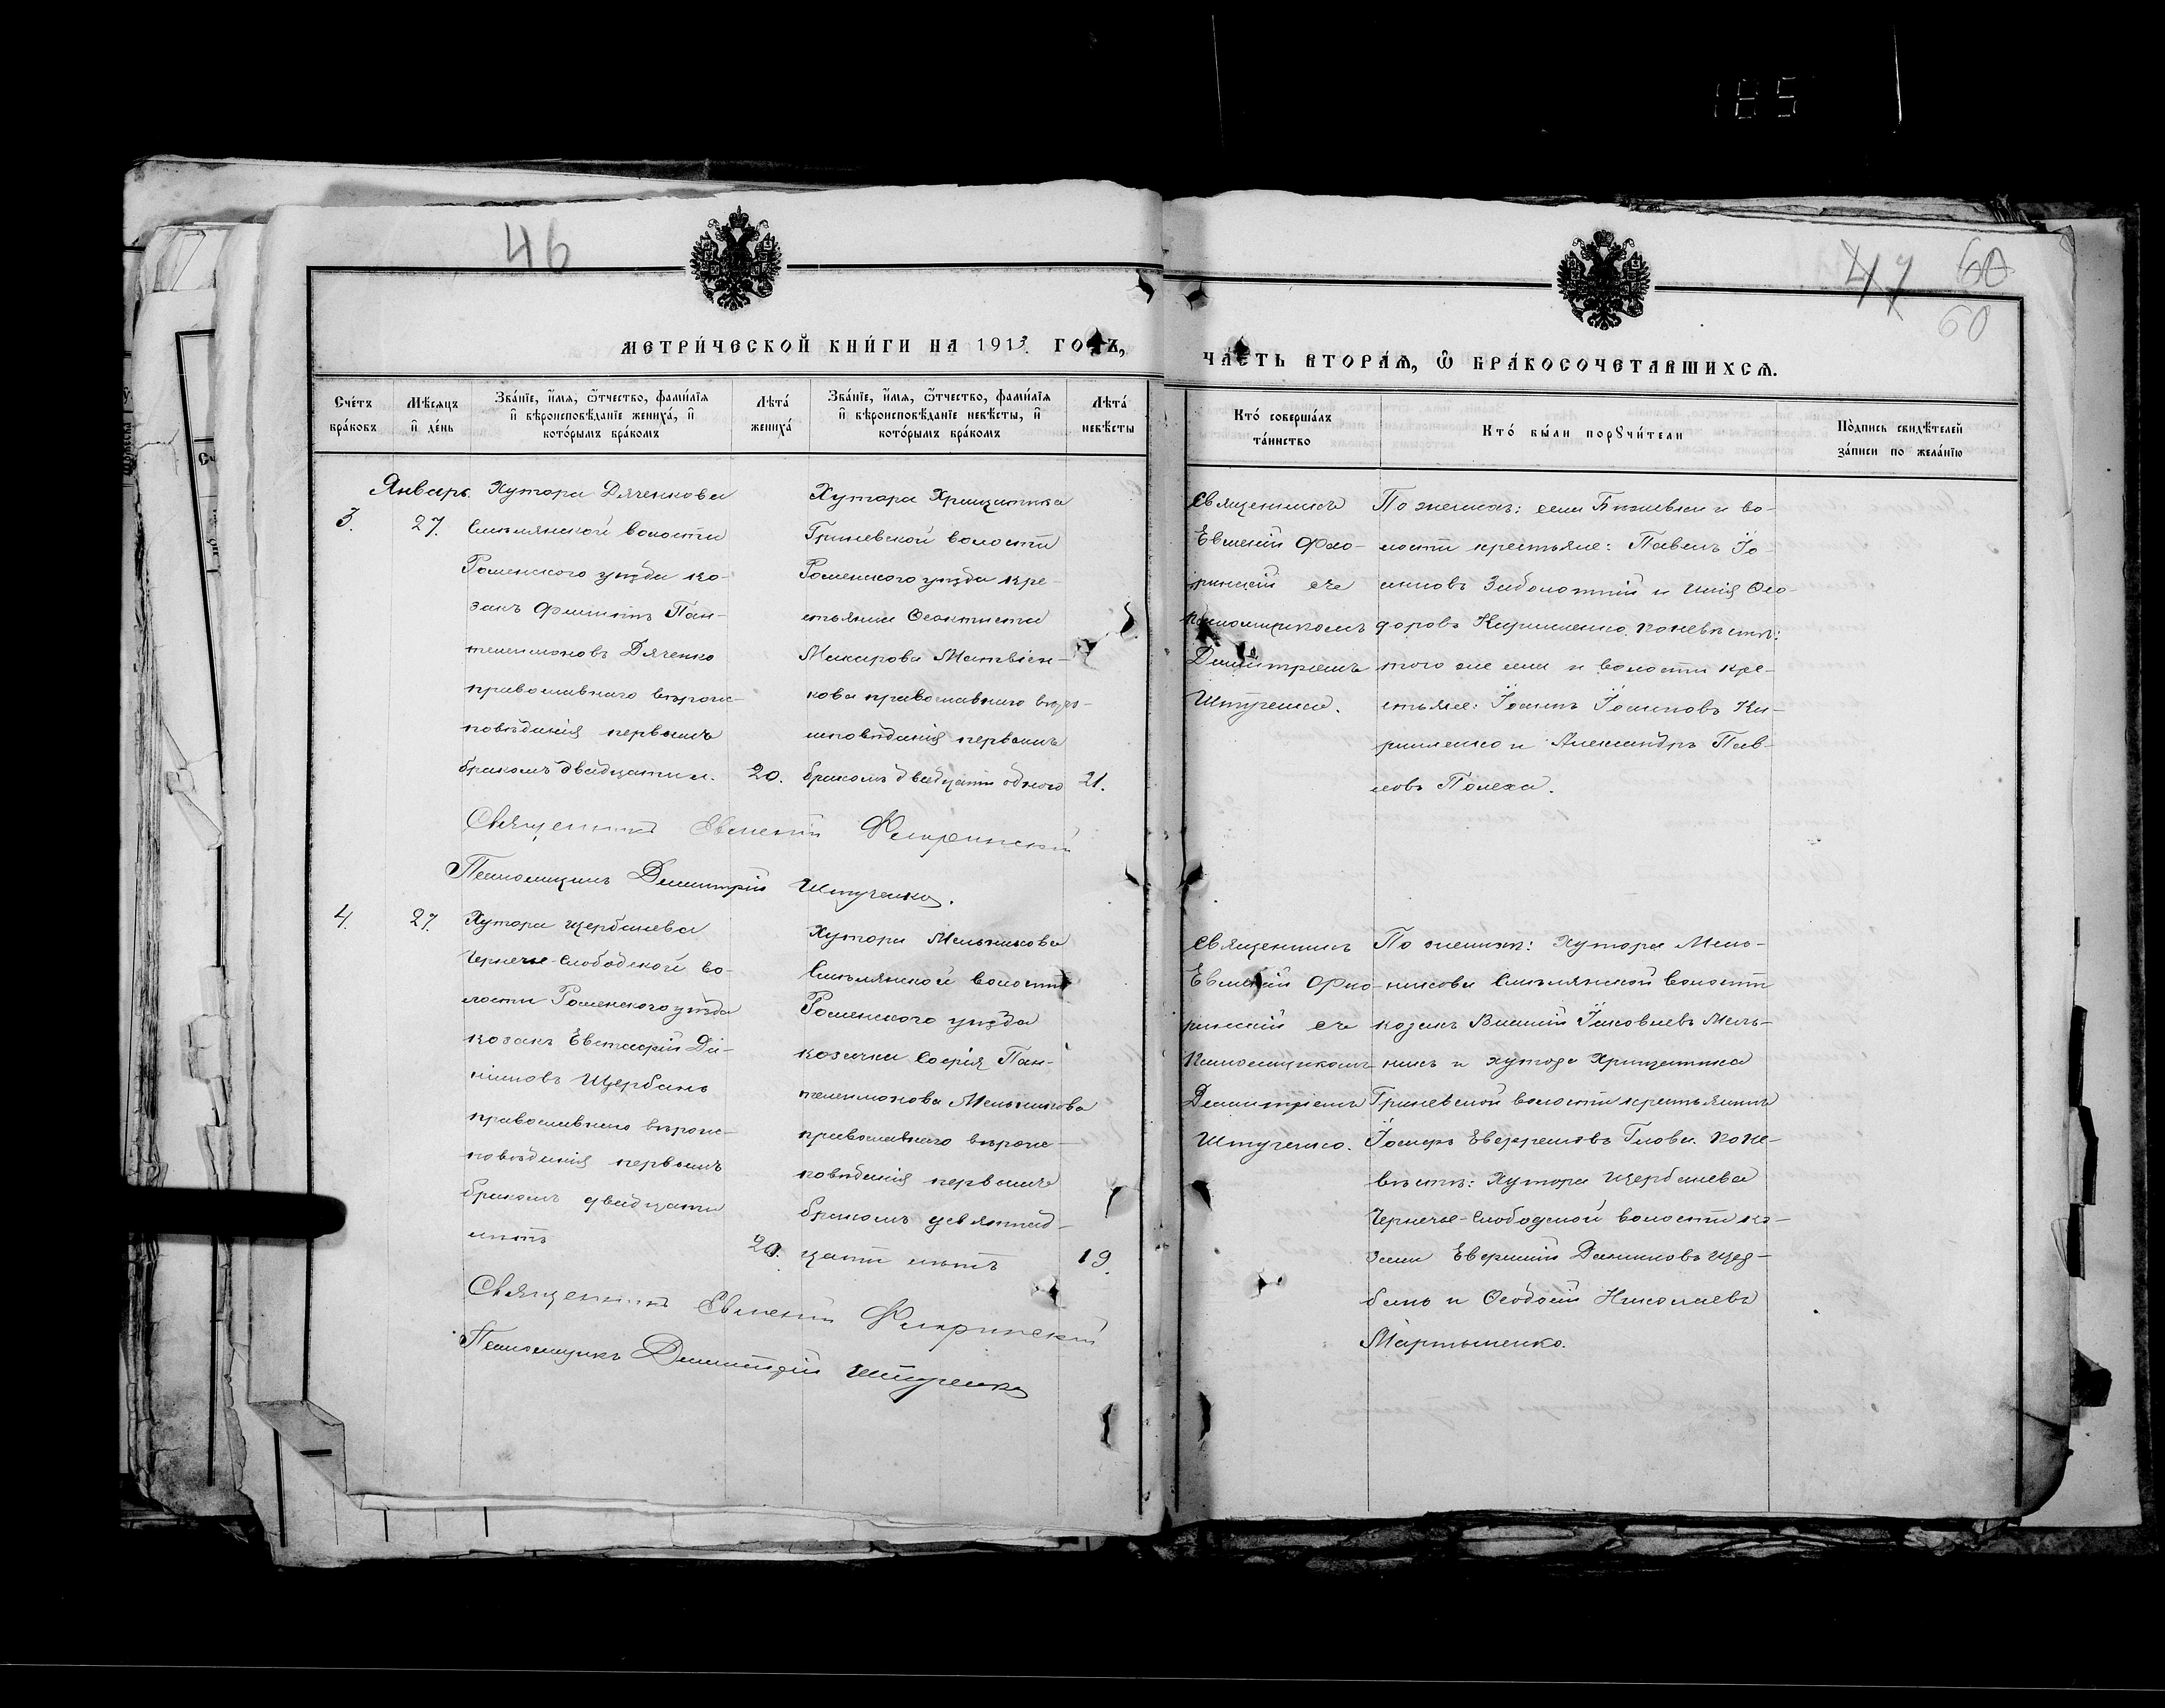 185
46
47 60
60
МЕТРИ́ЧЕСКОЙ КНИ́ГИ НА 1913. ГОДЪ,
ЧА́СТЬ ВТОРА́Ѧ, Ѡ҆ БРА́КОСОЧЕТАВШИХСѦ.
Сче́тъ бра́ковъ
Мѣ́сѧцъ и҆ де́нь
Зва́нїе, и҆́мѧ, ѻ҆́тчество, фами́лїѧ
и҆ вѣроисповѣ́данїе жениха̀, и҆
кото́рымъ бра́комъ
Лѣта̀ жениха̀
Зва́нїе, и҆́мѧ, ѻ҆́тчество, фами́лїѧ
и҆ вѣроисповѣ́данїе невѣ́сты, и҆
кото́рымъ бра́комъ
Лѣта̀ невѣ́сты
Кто̀ соверша́лъ
та́инство
Кто̀ бы́ли порꙋчи́тели
По́дпись свидѣ́телей
за́писи по жела́нїю
Январь.
3.
27.
Хутора Дяченкова
Смѣлянской волости
Роменского уѣзда ко-
закъ Филиппъ Пан-
телеимоновъ Дяченко
православнаго вѣроис-
повѣданія первымъ
бракомъ двадцати л.
20.
Хутора Хрищатика
Гриневской волости
Роменского уѣзда кре-
стьянка Феоктиста
Макарова Матвіен-
кова православнаго вѣро-
исповѣданія первымъ
бракомъ двадцати одного
21.
Священникъ
Евменій Фло-
ринскій съ
псаломщикомъ
Димитріемъ
Штученко.
По женихѣ: села
во-
лости крестьяне: Павелъ Іо-
анновъ Заболотній и Илія Ѳео-
доровъ Кириленко. По невѣстѣ:
того же села и волости кре-
стьяне: Іоаннъ Іоанновъ Ки-
риленко и Александръ Пав-
ловъ Полеха.
Священникъ Евменій Флоринскій
Псаломщикъ Димитрій Штученко.
4.
27.
Хутора Щербанева
Чернече-Слободской во-
лости Роменского уѣзда
козакъ Евстафій Да-
ніиловъ Щербань
православнаго вѣроис-
повѣданія первымъ
бракомъ двадцати
лѣтъ
20.
Хутора Мельникова
Смѣлянской волости
Роменского уѣзда
козачка Софія Пан-
телеимонова Мельникова
православнаго вѣроис-
повѣданія первымъ
бракомъ девятнад-
цати лѣтъ
19.
Священникъ
Евменій Фло-
ринскій съ
Псаломщикомъ
Димитріемъ
Штученко.
По женихѣ: Хутора Мель-
никова Смѣлянской волости
козакъ Василій Іаковлевъ Мель-
никъ и хутора Хрищатика
Гриневской волости крестьянинъ
Іосифъ Евфремовъ Глова. По не-
вѣстѣ: Хутора Щербанева
Чернече-Слободской волости ко-
заки Евфимій Даниловъ Щер-
бань и Ѳеодосій Николаевъ
Мартыненко.
Священникъ Евменій Флоринскій
Псаломщикъ Димитрій Штученко